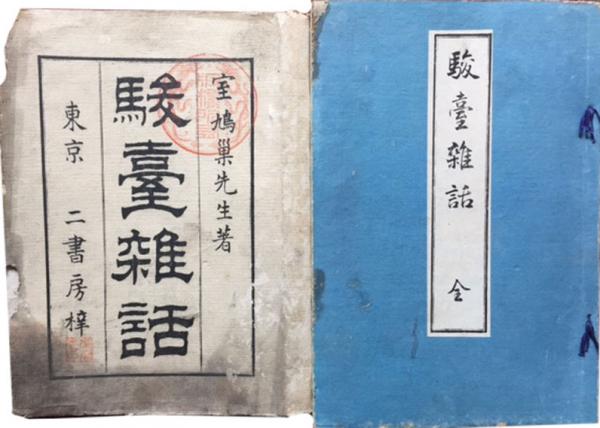 室鳩巢先生著
駿臺雜話
東京 二書房梓
駿臺雜話 全